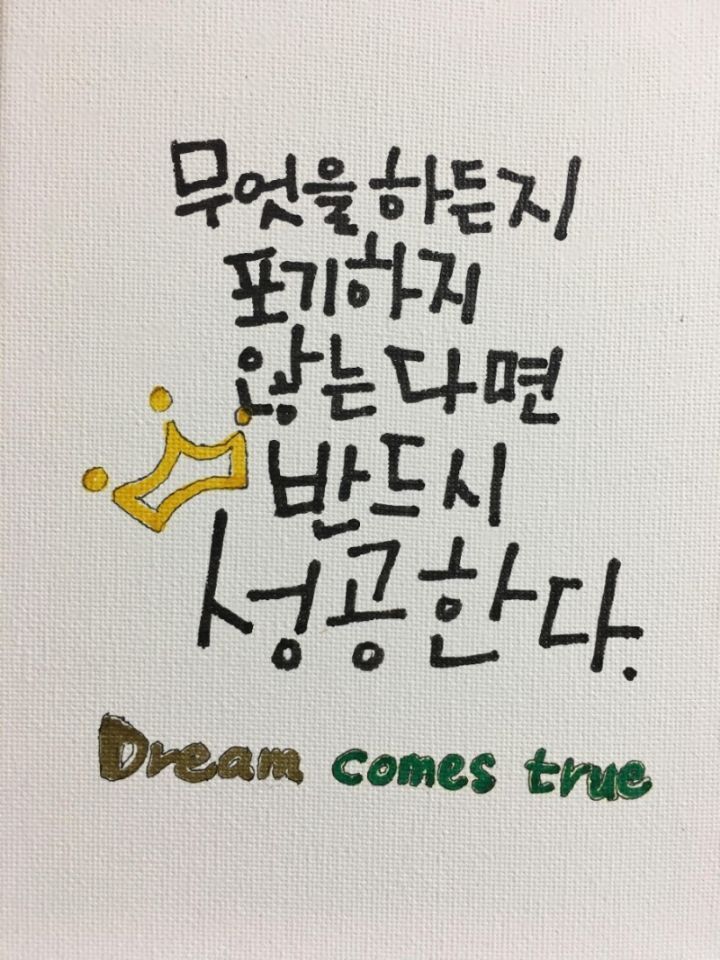 무엇을하든지
포기하지
않는다면
반드시
성공한다.
Dream comes true